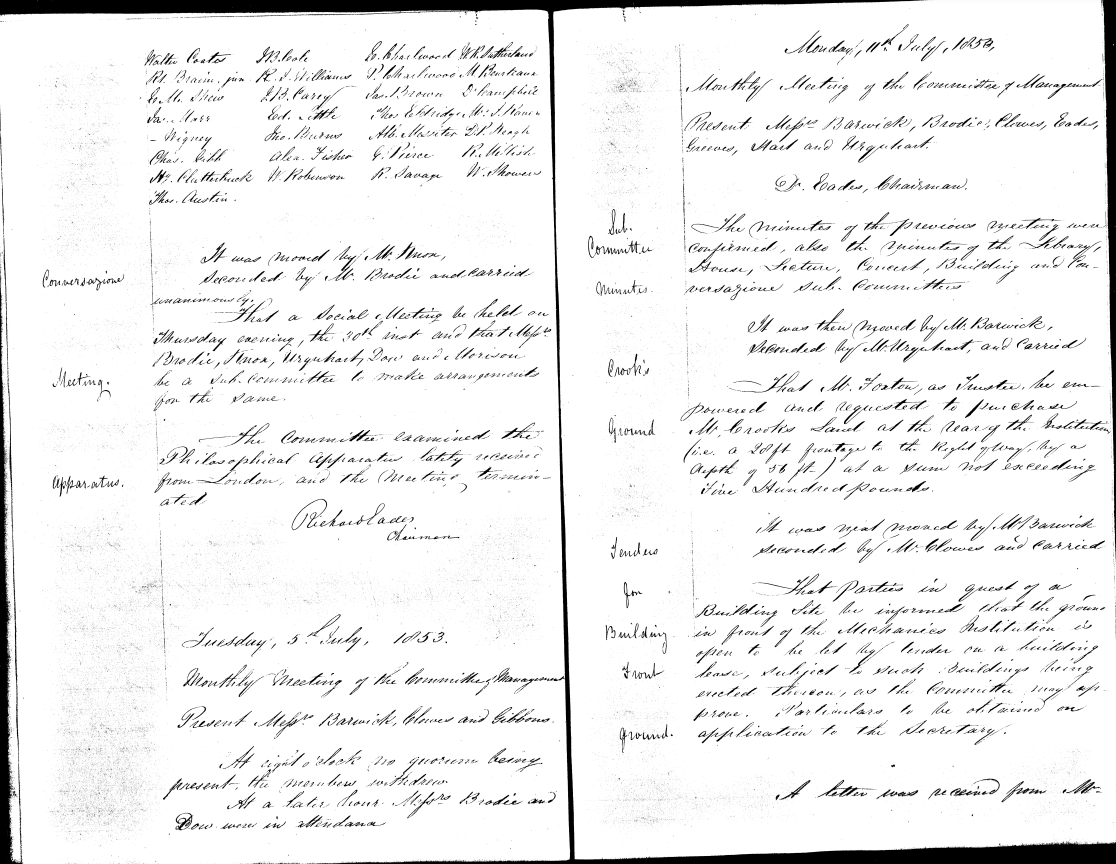 Walter Coates J. B. Cole E. Charlwood W. R. Sutherland
Rt. Brain, jun R. J. Williams P. Charlwood M.
Geo. M. J. B. Carey Jas. Brown D. Campbell
Jas. Marr Ed. Little Thos Eldridge
- Wigney Jno. Burns Alb. D. R.
Chas. Gibb Alex. Fisher G. Pierce R. Mellish
Hy. Clutterbuck W. Robinson R. Savage W. Showers
Thos. Austin.
It was moved by Mr. Knox,
Conversazione
seconded by Mr. Brodie and carried
unanimously;
That a Social Meeting be held on
Thursday evening, the 30th inst and that Messrs
Brodie, Knox, Urquhart, Dow and Morison
Meeting.
be a sub-committee to make arrangements
for the same.
The Committee examined the
Philosophical Apparatus lately received
Apparatus.
from London, and the Meeting termin-
ated
Richard Eades
Chairman
Tuesday, 5th July, 1853.
Monthly Meeting of the Committee of Management
Present Messrs Barwick, Clowes and Gibbons.
At eight o'clock no quorum being
present, the members withdrew.
At a later hour Messrs Brodie and
Dow were in attendance
Monday, 11th July, 1853,
Monthly Meeting of the Committee of Management
Present Messrs Barwick, Brodie, Clowes, Eades,
Greeves, Hart and Urquhart.
Dr. Eades, Chairman.
Sub-
The minutes of the previous meeting were
Committee
confirmed, also the minutes of the Library,
House, Lecture, Concert, Building and Con-
Minutes.
versazione Sub-Committees
It was then moved by Mr. Barwick,
seconded by Mr. Urquhart, and carried
Crook's
That Mr. Foxton, as Trustee, be em-
powered and requested to purchase
Ground
Mr. Crook's Land at the rear of the Institution,
(i.e. a 28ft frontage to the Right of Way, by a
depth of 56 ft.) at a sum not exceeding
Five Hundred pounds.
It was next moved by Mr Barwick
Tenders
seconded by Mr. Clowes and carried
for
That Parties in quest of a
Building Site be informed that the ground
Building
in front of the Mechanics Institution is
open to be let by tender on a building
Front
lease, subject to such Buildings being
erected thereon, as the Committee may ap-
prove. Particulars to be obtained on
ground.
application to the Secretary.
A letter was received from Mr-